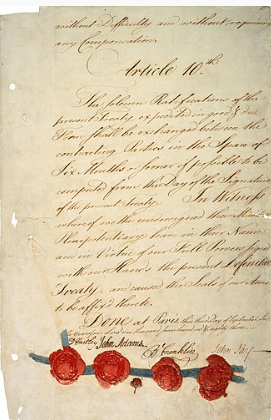 without Difficulty and without requiring
any Compensation.
Article 10th
The solemn Ratifications of the
present Treaty expedited in good & due
Form shall be exchanged between the
contracting Parties in the Space of
Six Months or sooner if possible to be
computed from the Day of the Signature
of the present Treaty. In Witness
whereof we the undersigned their Ministers
Plenipotentiary have in their Name
and in Virtue of our Full Powers signed
with our Hands the present Definitive
Treaty, and caused the Seals of our Arms
to be affix'd thereto.
Done at Paris, this third day of September, In
the year of our Lord one thousand seven hundred & eighty three.
D Hartley John Adams. B Franklin John Jay